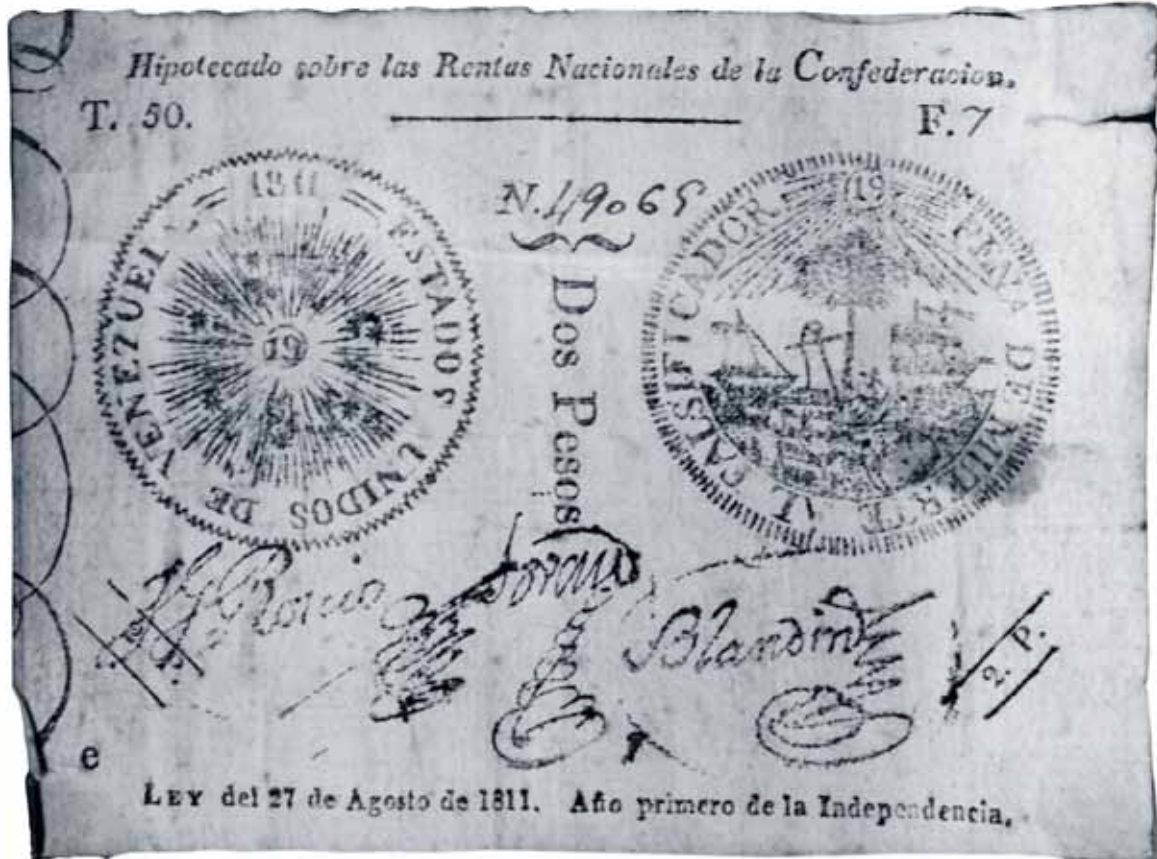 Hipotecado sobre las Rentas Nacionales de la Confederacion.
T. 50.
F. 7
N. 49065
1811 ESTADOS UNIDOS DE VENEZUEL
19
Dos Pesos
19
PENA DE MUERTE AL FALSIFICADOR
Blandin
2. P.
e
LEY del 27 de Agosto de 1811. Año primero de la Independencia.